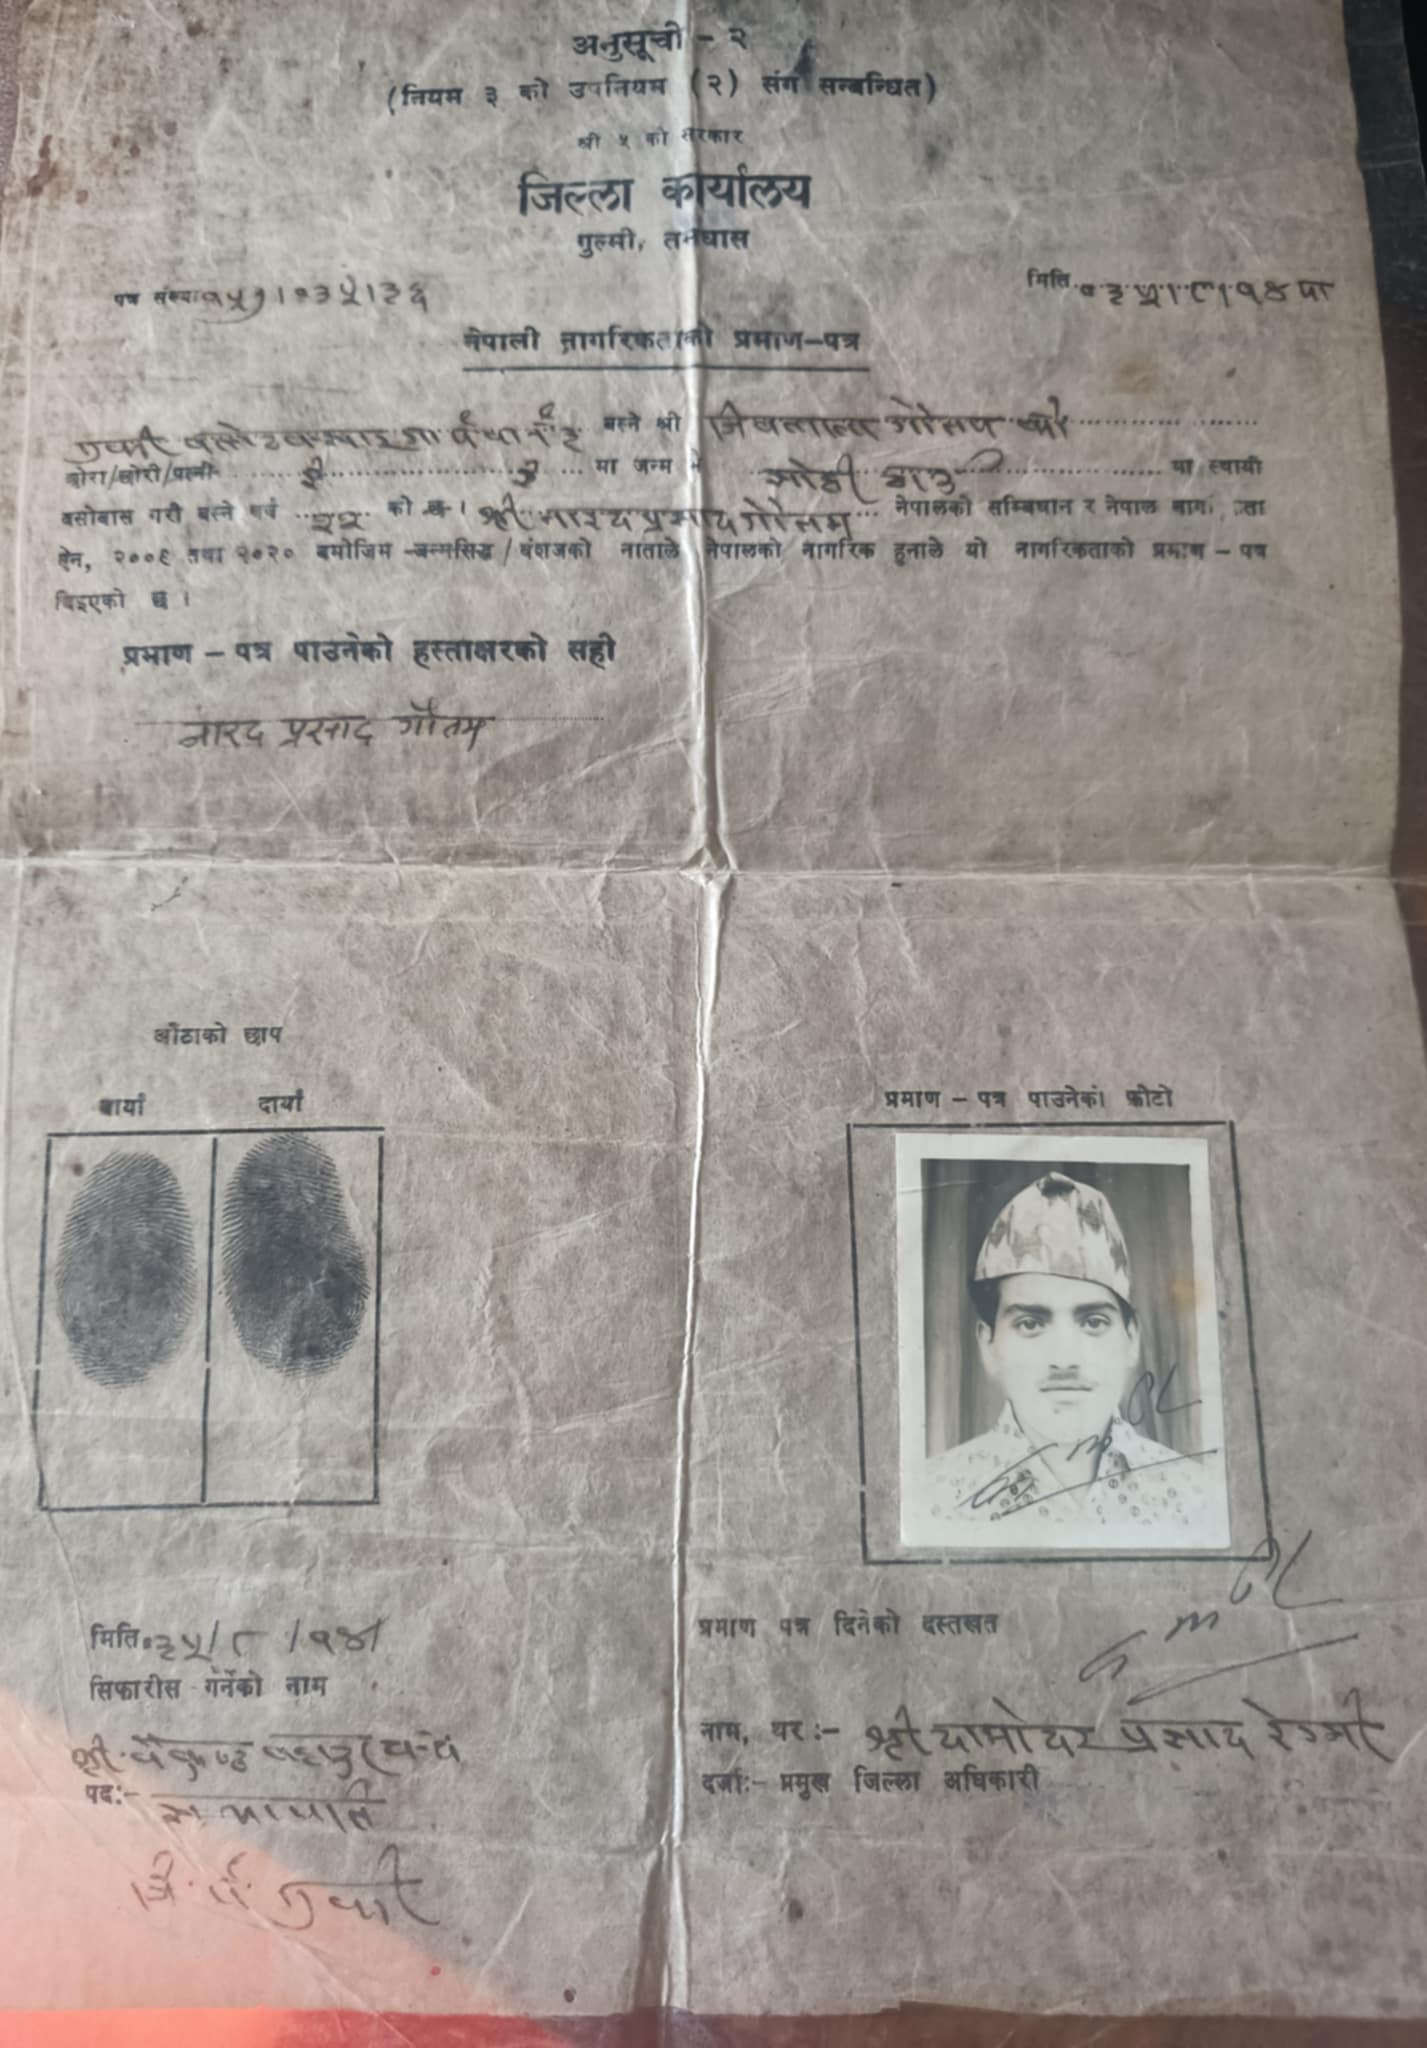 अनुसूची - २
(नियम ३ को उपनियम (२) संग सम्बन्धित)
श्री ५ को सरकार
जिल्ला कार्यालय
गुल्मी, तम्घास
पत्र संख्या
मिति
नेपाली नागरिकताको प्रमाण-पत्र
बस्ने श्री
छोरा/छोरी/पत्नी मा जन्म भै मा स्थायी
बसोबास गरी बस्ने वर्ष २२ को छ। श्री नारद प्रसाद गौतम नेपालको सम्बिधान र नेपाल
ऐन, २००९ तथा २०२० बमोजिम जन्मसिद्ध / बंशजको नाताले नेपालको नागरिक हुनाले यो नागरिकताको प्रमाण - पत्र
दिइएको छ ।
प्रमाण - पत्र पाउनेको हस्ताक्षरको सही
नारद प्रसाद गौतम
औंठाको छाप
बायाँ दायाँ
प्रमाण - पत्र पाउनेको फोटो
मिति ०३५/८/१४/
प्रमाण पत्र दिनेको दस्तखत
सिफारीस गर्नेको नाम
नाम, थर :- श्री दामोदर प्रसाद रेग्मी
पद:- सभापति
दर्जा:- प्रमुख जिल्ला अधिकारी